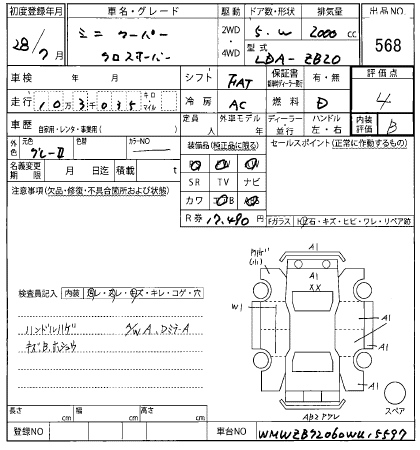 初度登録年月 車名・グレード 駆動 ドア数・形状 排気量 出品NO
28/7月 ミニ クーパー クロスオーバー 2WD・4WD 5.W 2000cc 568
型式 LDA-ZB20
車検 年 月 シフト FAT 保証書 有・無 評価点
走行 10万3千035 キロ マイル 冷房 AC 燃料 D 4
車歴 自家用・レンタ・事業用( ) 定員 人 外車モデル 年 ディーラー・並行 ハンドル 左・右 内装評価 B
外色 元色 グレーII 色替 カラーNO 装備品(純正品に限る) セールスポイント(正常に作動するもの)
名義変更期限 月 日迄 積載 t
SR TV ナビ
注意事項(欠品・修復・不具合箇所および状態)
カワ
R券 17,490円 Fガラス
石・キズ・ヒビ・ワレ・リペア跡
A1
A1
XX
検査員記入 内装
レ・スレ・キズ・キレ・コゲ・穴
W1
A1
ハンドルハゲ
A1
A1
スペア
長さ cm 幅 cm 高さ cm
登録NO 車台NO WMWZB72060WU15597